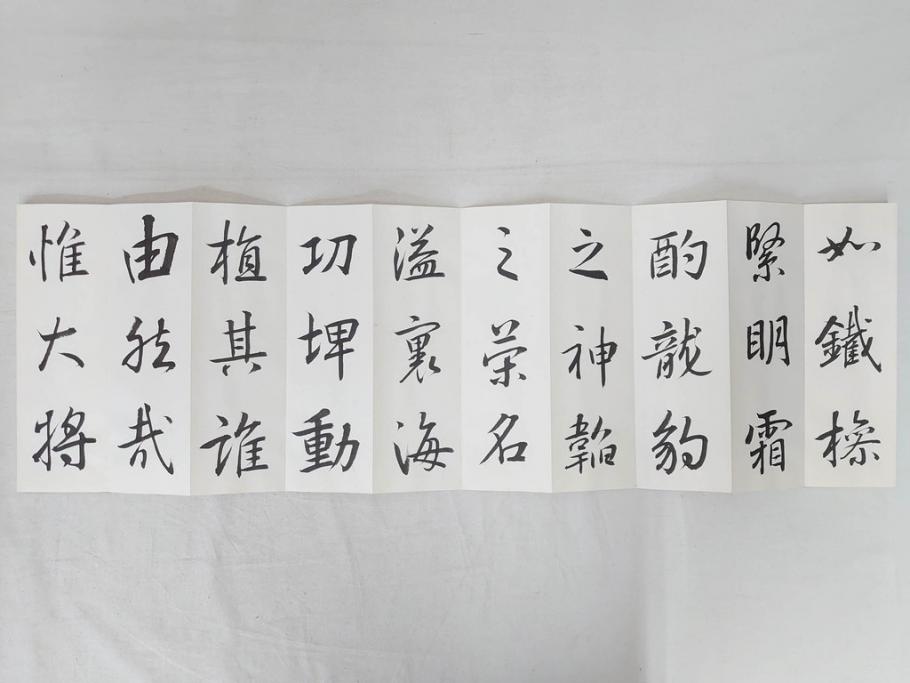 如鐵操
緊明霜
酌龍豹
之神韜
之榮名
溢裏海
功埤動
植其誰
由然哉
惟大將